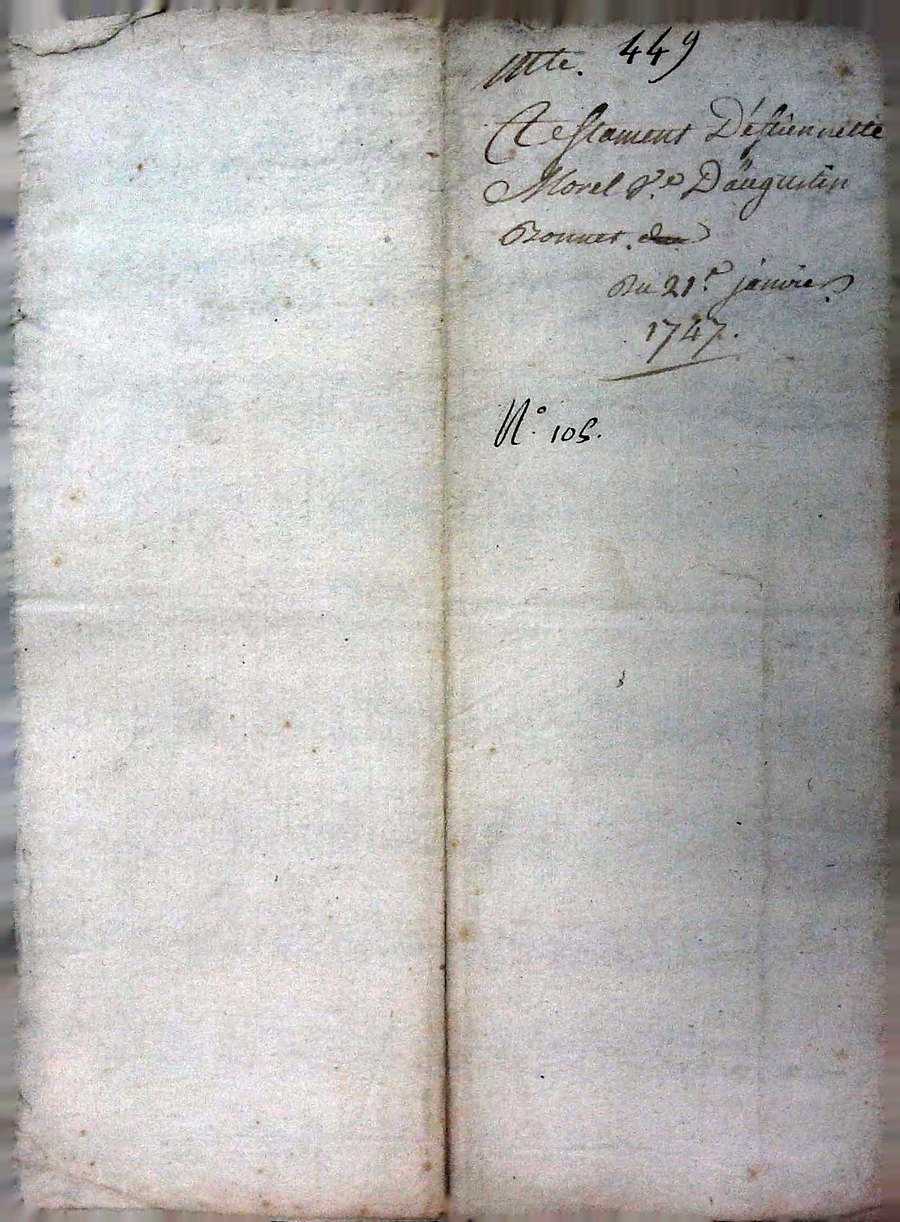 Mte. 449
Testament D'éstiennette
Morel Ve. D'augustin
Bonnet.
Du 21e. janvier
1747.
N° 105.